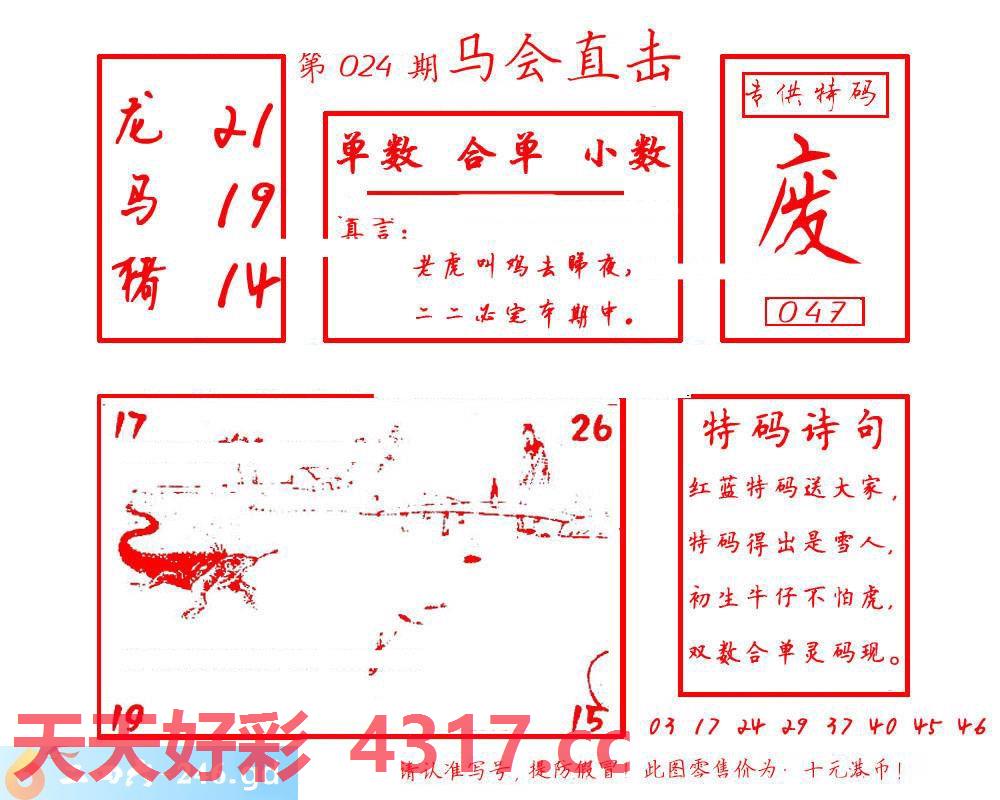 第 024 期 马会直击
龙 21
马 19
猪 14
单数 合单 小数
真言:
老虎叫鸡去睇夜,
二二必定本期中。
专供特码
废
047
17
26
19
15
特码诗句
红蓝特码送大家,
特码得出是雪人,
初生牛仔不怕虎,
双数合单灵码现。
03 17 24 29 37 40 45 46
天天好彩 4317.cc
246.gd
请认准写号,提防假冒!此图零售价为·十元港币!